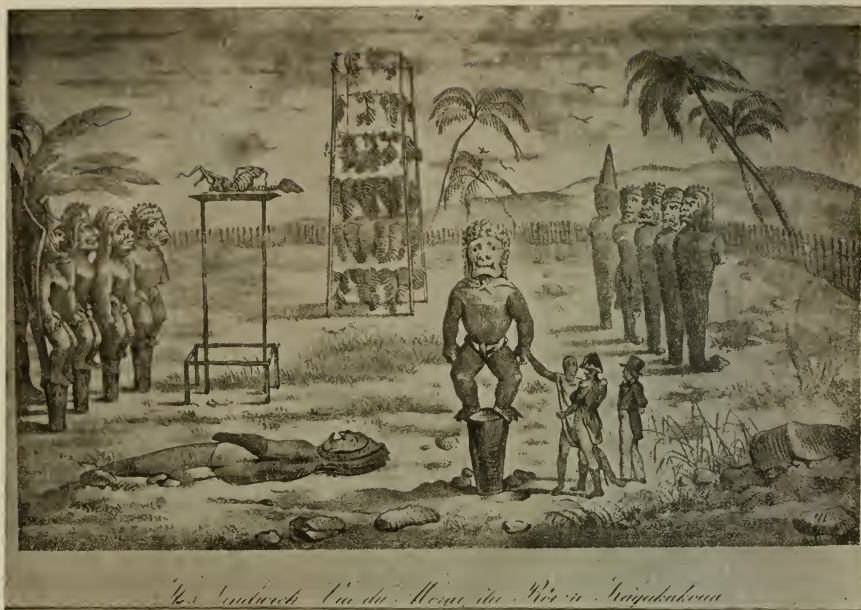 Iles Sandwich Vue du Morai du Roi à Kayakakoua